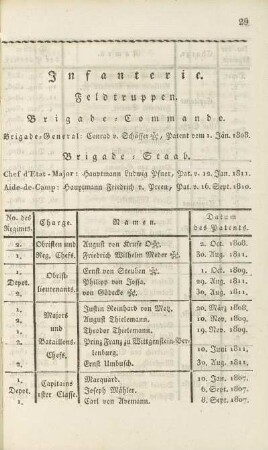 29
Infanterie.
Feldtruppen.
Brigade-Commando.
Brigade-General: Conrad v. Schäffer, Patent vom 1. Jän. 1808.
Brigade-Staab.
Chef d'Etat-Major: Hauptmann Ludwig Pfnor, Pat. v. 12. Jan. 1811.
Aide-de-Camp: Hauptmann Friedrich v. Preen, Pat. v. 16. Sept. 1810.
No. des Regimts. Charge. Namen. Datum des Patents.
2. Obristen und August von 2. Oct. 1808.
1. Reg. Chefs. Friedrich Wilhelm Moder 30. Aug. 1811.
1. Obrist- Ernst von Steuben 1. Oct. 1809.
Depot. lieutenants. Philipp von Jossa. 29. Aug. 1811.
2. von Gödecke 30. Aug. 1811.
1. Majors Justin Reinhard von Motz. 20. März 1808.
1. und August Thielemann. 10. Nov. 1809.
1. Bataillons- Theodor Thielemann. 19. Nov. 1809.
2. Chefs. Prinz Franz zu Wittgenstein-Ber-
lenburg. 10. Juni 1811.
2. Ernst Umbusch. 30. Aug. 1811.
1. Capitains Marquard. 10. Jän. 1807.
Depot. 1ster Classe. Joseph Mühler. 6. Sept. 1807.
1. Carl von Avemann. 8. Sept. 1807.